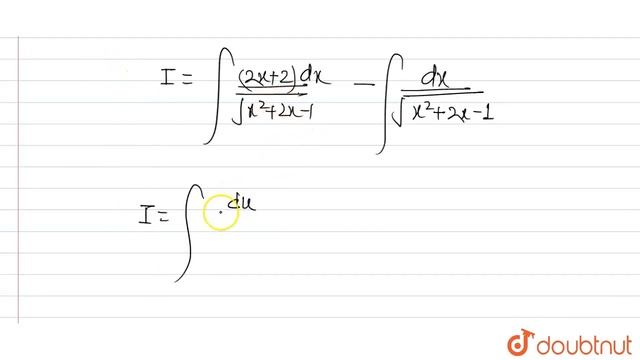 I = ∫ (2x+2)dx / √x²+2x-1 - ∫ dx / √x²+2x-1
I = ∫ du
doubtnut